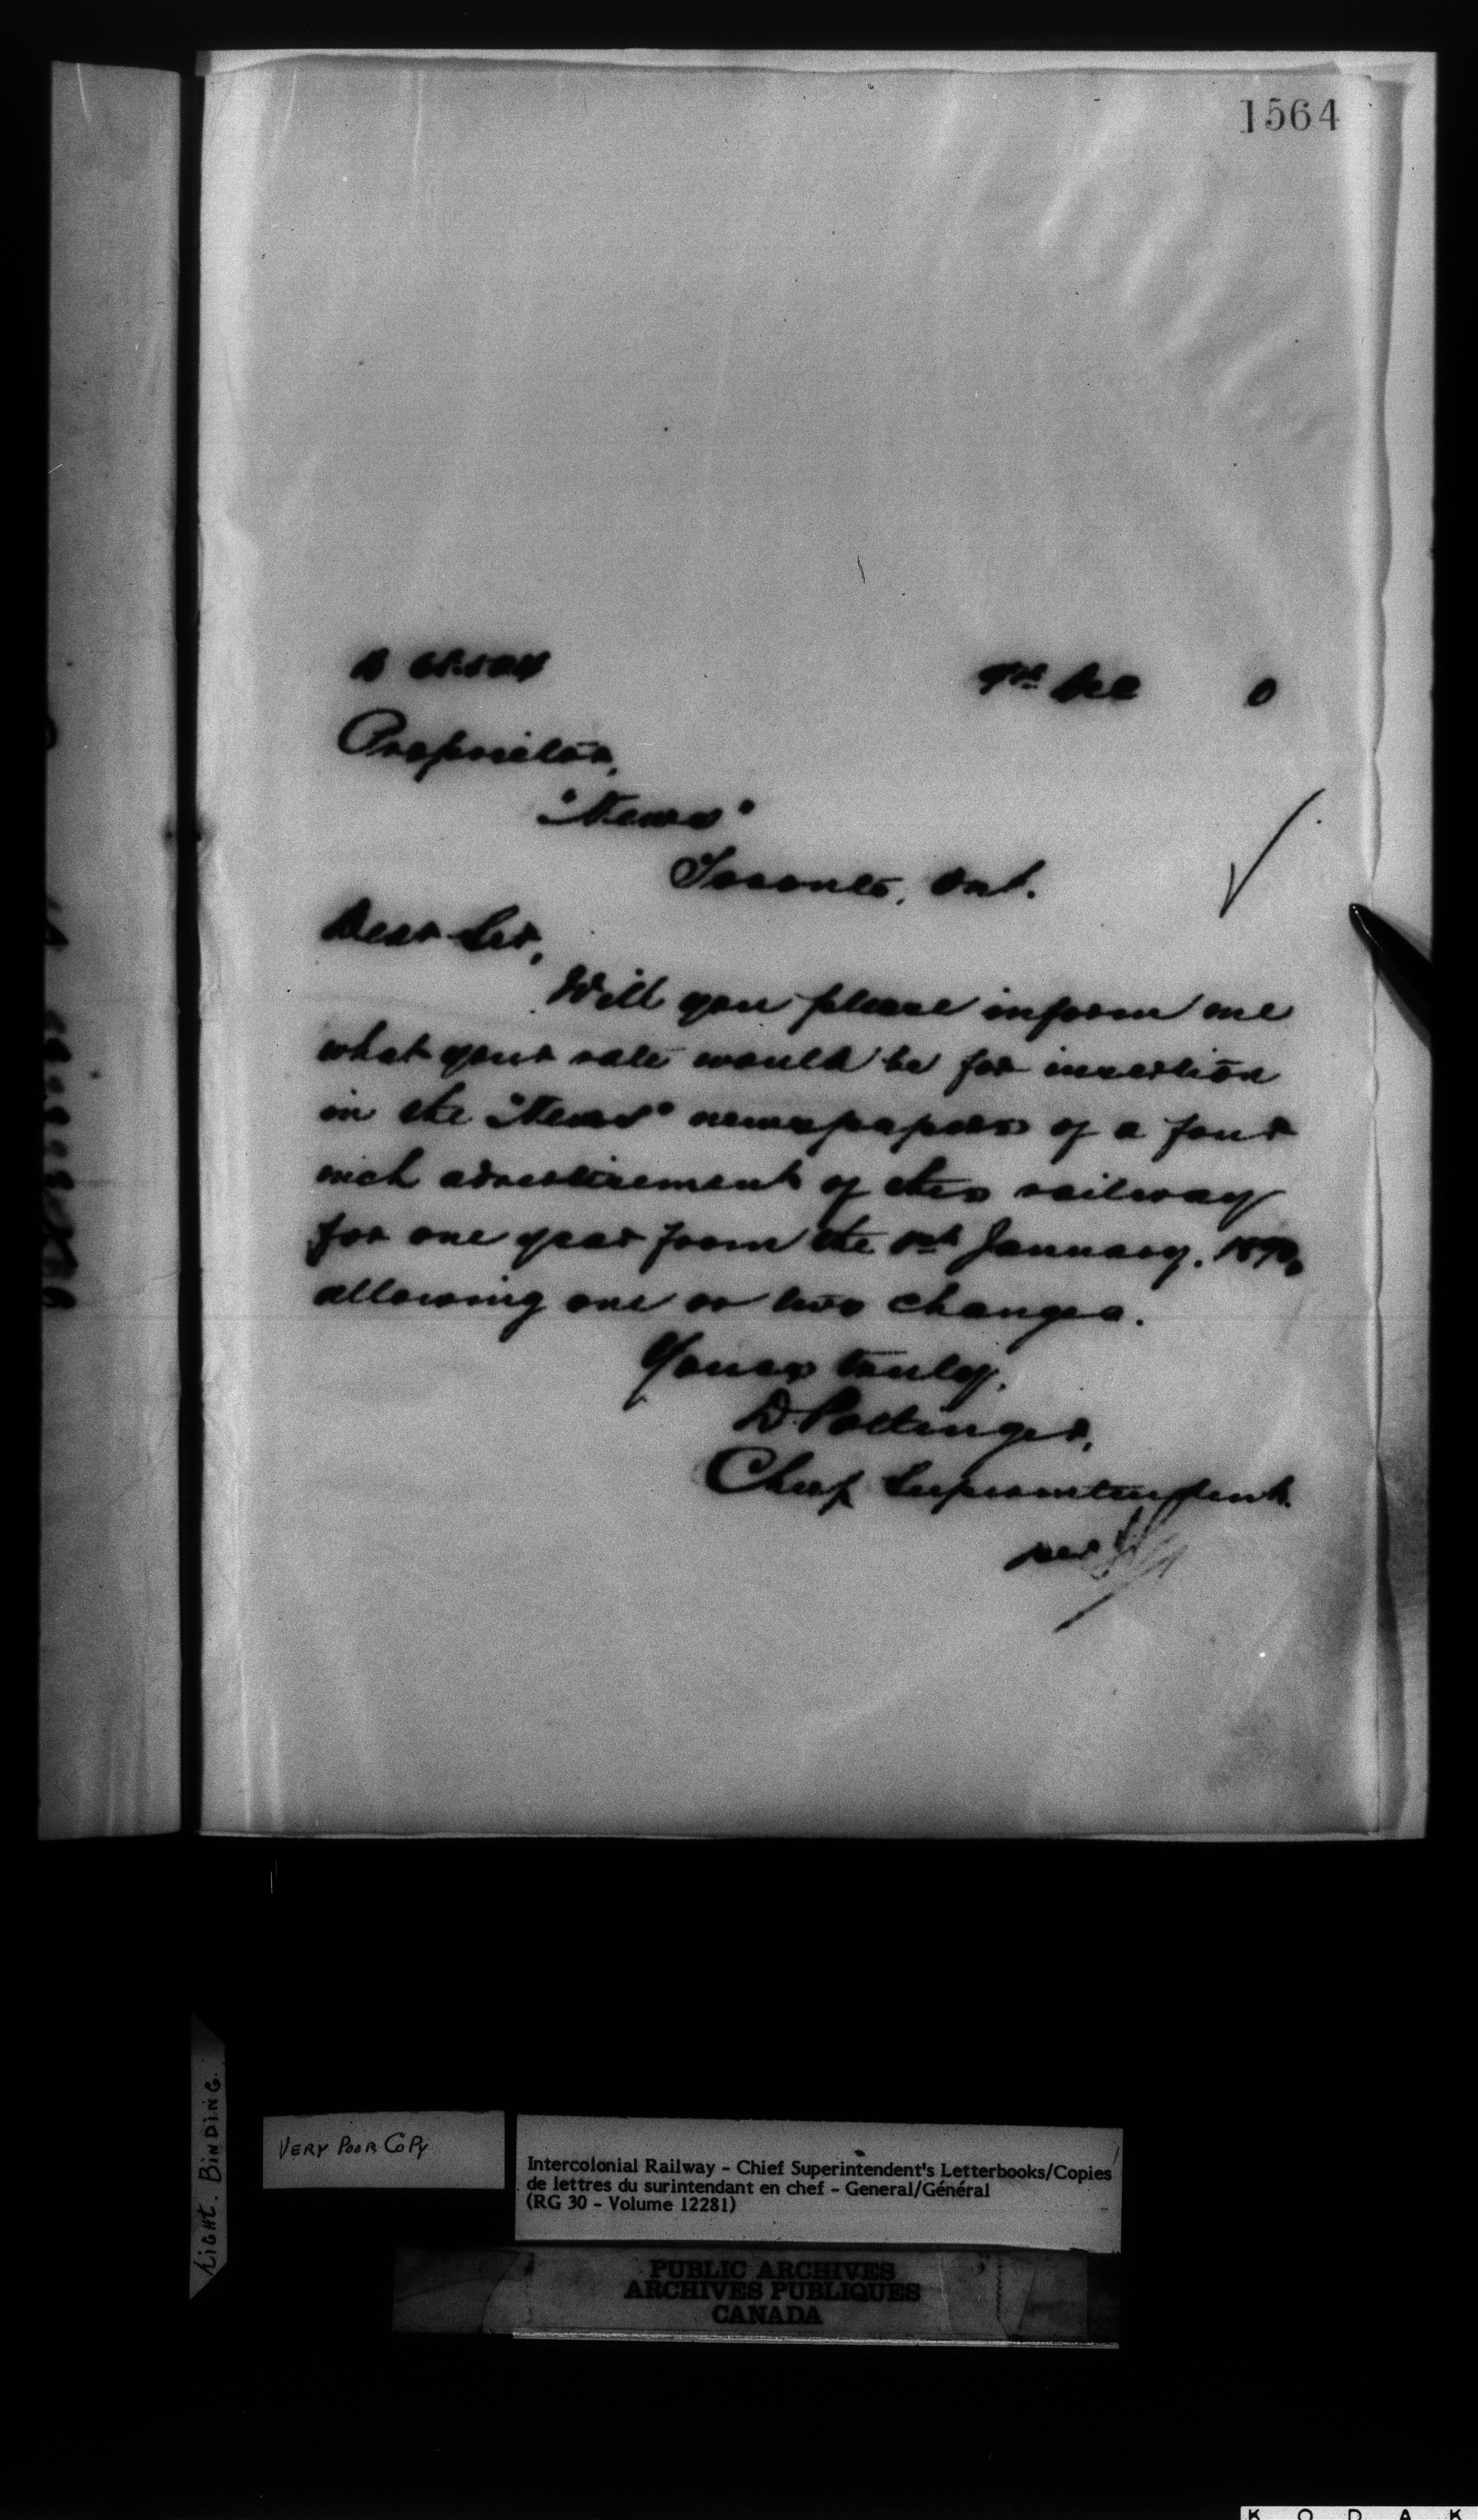 1564
9th Dec
Proprietor,
"News"
Toronto, Ont.
Dear Sir,
Will you please inform me
what your rate would be for insertion
in the "News" newspapers of a four
inch advertisement of this railway
for one year from the 1st January, 1890,
allowing one or two changes.
Yours truly,
D. Pottinger,
Chief Superintendent.
per
LIGHT. BINDING.
VERY POOR COPY
Intercolonial Railway - Chief Superintendent's Letterbooks/Copies
de lettres du surintendant en chef - General/Général
(RG 30 - Volume 12281)
PUBLIC ARCHIVES
ARCHIVES PUBLIQUES
CANADA
K O D A K